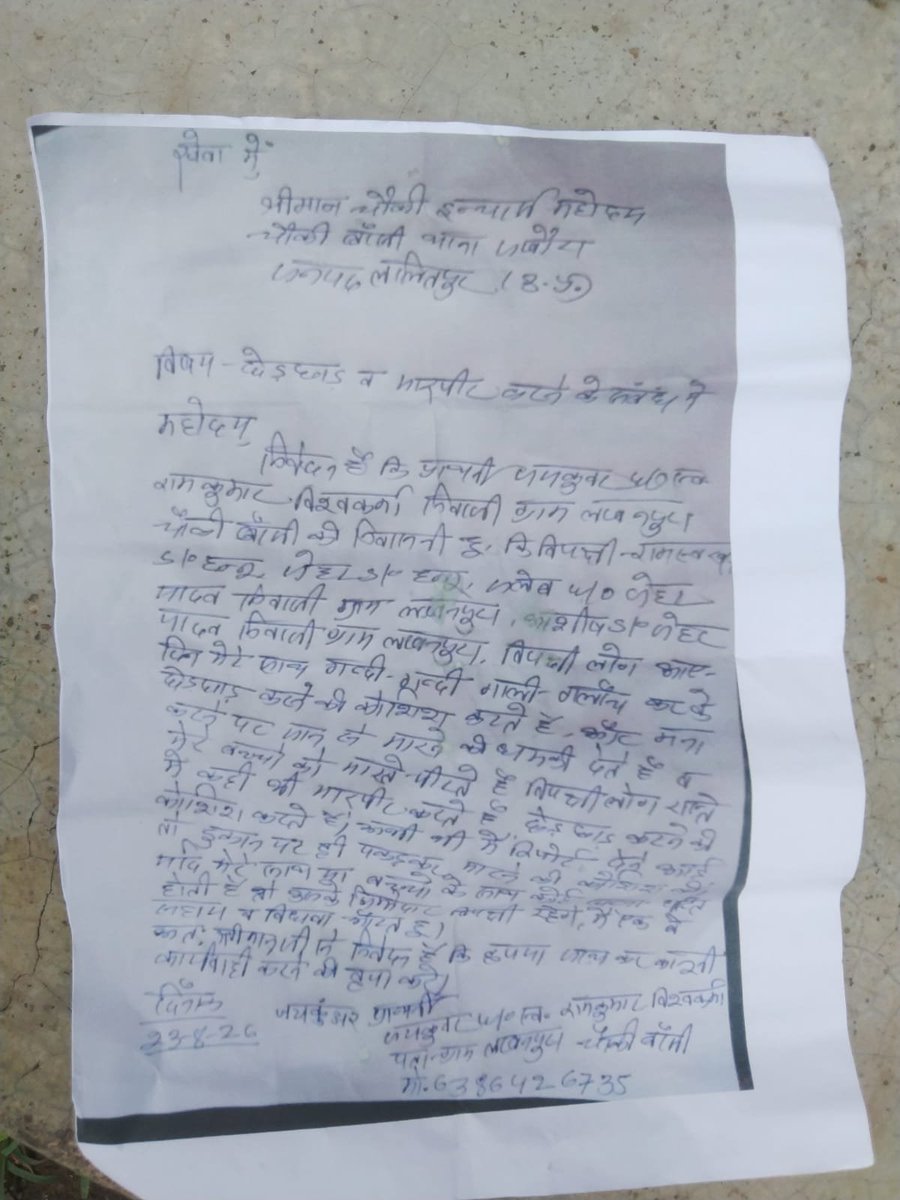 सेवा में
श्रीमान चौकी इन्चार्ज महोदय
चौकी बाँसी थाना जखौरा
जनपद ललितपुर (उ.प्र.)
विषय - छेड़छाड व मारपीट करने के संबंध में
महोदय
निवेदन है कि प्रार्थनी जयकुवर w/o स्व
रामकुमार विश्वकर्मा निवासी ग्राम लखनपुरा
चौकी बाँसी की निवासनी हूं, कि विपक्षी - रामस्वरूप
S/O हन्नू, S/O हन्नू, w/o
यादव निवासी ग्राम लखनपुरा, आशीष S/O
यादव निवासी ग्राम लखनपुरा, विपक्षी लोग आए-
दिन मेरे साथ गन्दी-गन्दी गाली-गलौंच करके
छेडछाड़ करने की कोशिश करते हैं, और मना
करने पर जान से मारने की धमकी देते हैं व
मेरे बच्चो को मारते-पीटते हैं विपक्षी लोग रास्ते
मे कही भी मारपीट करते हैं छेड़छाड़ करने की
कोशिश करते है, कभी भी में रिपोर्ट देने आई
तो दुकान पर ही पकडकर मारने की कोशिश की
यदि मेरे साथ या बच्चो के साथ कोई घटना घटित
होती है तो उसके जिम्मेदार विपक्षी रहेगे, में एक बे
सहारा व विधवा औरत हू।
अतः श्रीमानजी से निवेदन है कि कृपया जांच कर कानूनी
कार्यवाही करने की कृपा करें।
दिनांक
23-8-26
जयकुंअर प्रार्थनी
जयकुवर w/o स्व. रामकुमार विश्वकर्मा
पता-ग्राम लखनपुरा चौकी बाँसी
मो. 6386426735